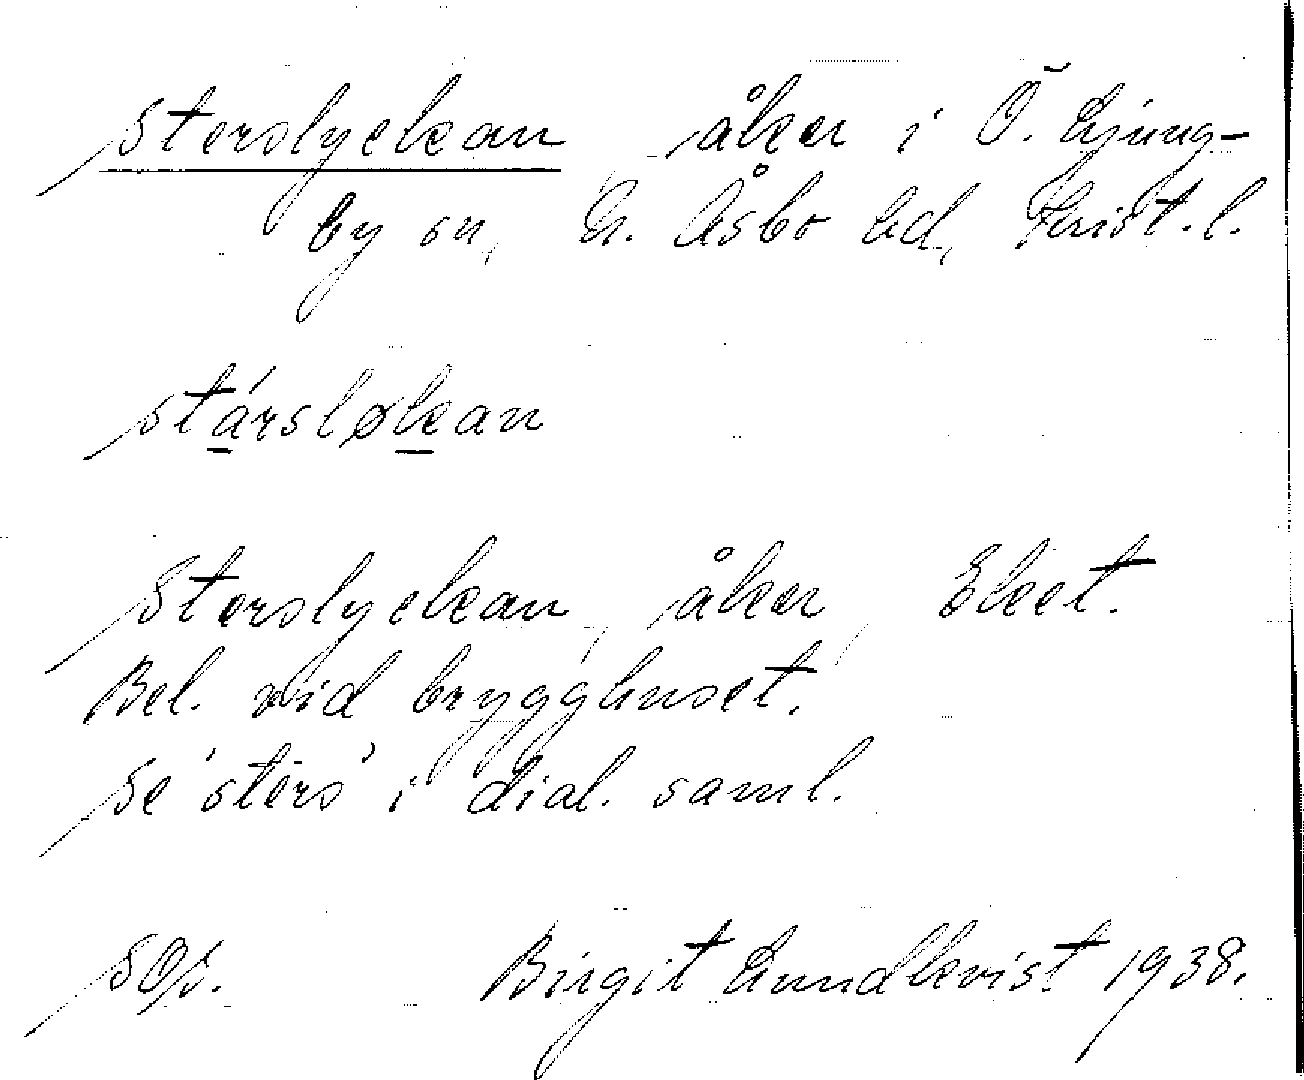 Sterslyckan, åker i Ö. Ljung-
by sn, N. Åsbo hd, Krist. l.
stársløkan
Sterslyckan, åker, Ekeet.
Bel. vid brygghuset.
Se 'sters' i dial. saml.
SOS. Birgit Lundkvist 1938.